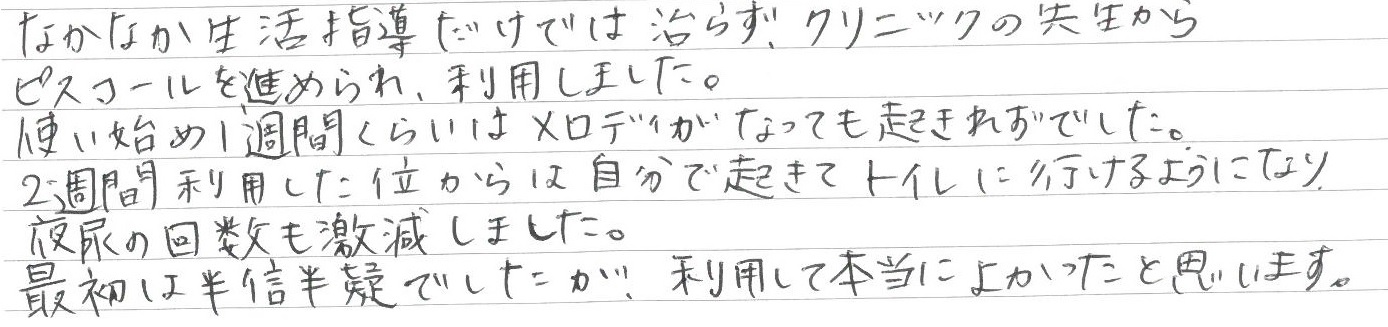 なかなか生活指導だけでは治らず、クリニックの先生から
ピスコールを進められ、利用しました。
使い始め1週間くらいはメロディがなっても起きれずでした。
2週間利用した位からは自分で起きてトイレに行けるようになり、
夜尿の回数も激減しました。
最初は半信半疑でしたが、利用して本当によかったと思います。